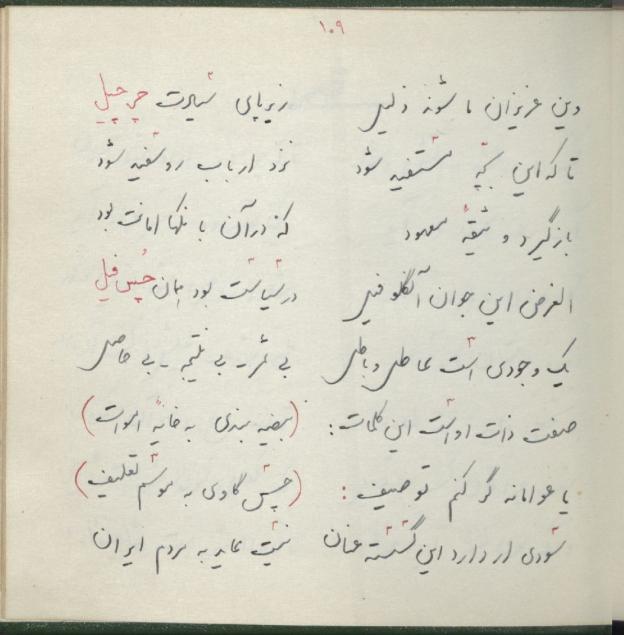 ۱۰۹
وین عزیزان ما شوند ذلیل زیر پای سیاست چرچیل
تا که این بچه مستفید شود نزد ارباب رو سفید شود
باز گیرد وثیقهٔ معهود که در آن بانکها امانت بود
الغرض این جوان آنگلوفیل در سیاست بود بسان فیل
یک وجودی است عاطل و باطل بی ثمر، بی نتیجه، بی حاصل
صفت ذات اوست این کلمات: (بیضه بندی به خایهٔ اموات)
یا عوامانه گر کنم توصیف: (گاوی به موسم تعلیف)
شوری ار دارد این گسسته عنان نیت عاید به مردم ایران